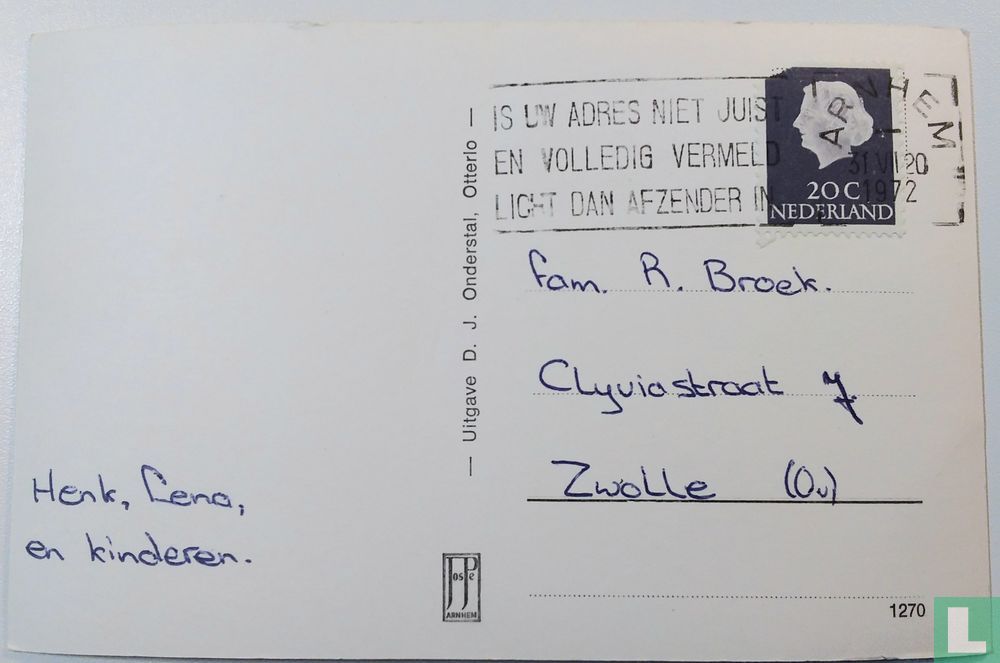 IS UW ADRES NIET JUIST
EN VOLLEDIG VERMELD
LICHT DAN AFZENDER IN
ARNHEM
31.VII 20
1972
20 C
NEDERLAND
fam. R. Broek.
Clyviastraat 7.
Zwolle (Ov)
Henk, Lena,
en kinderen.
— Uitgave D. J. Onderstal, Otterlo —
JosPé
ARNHEM
1270
L